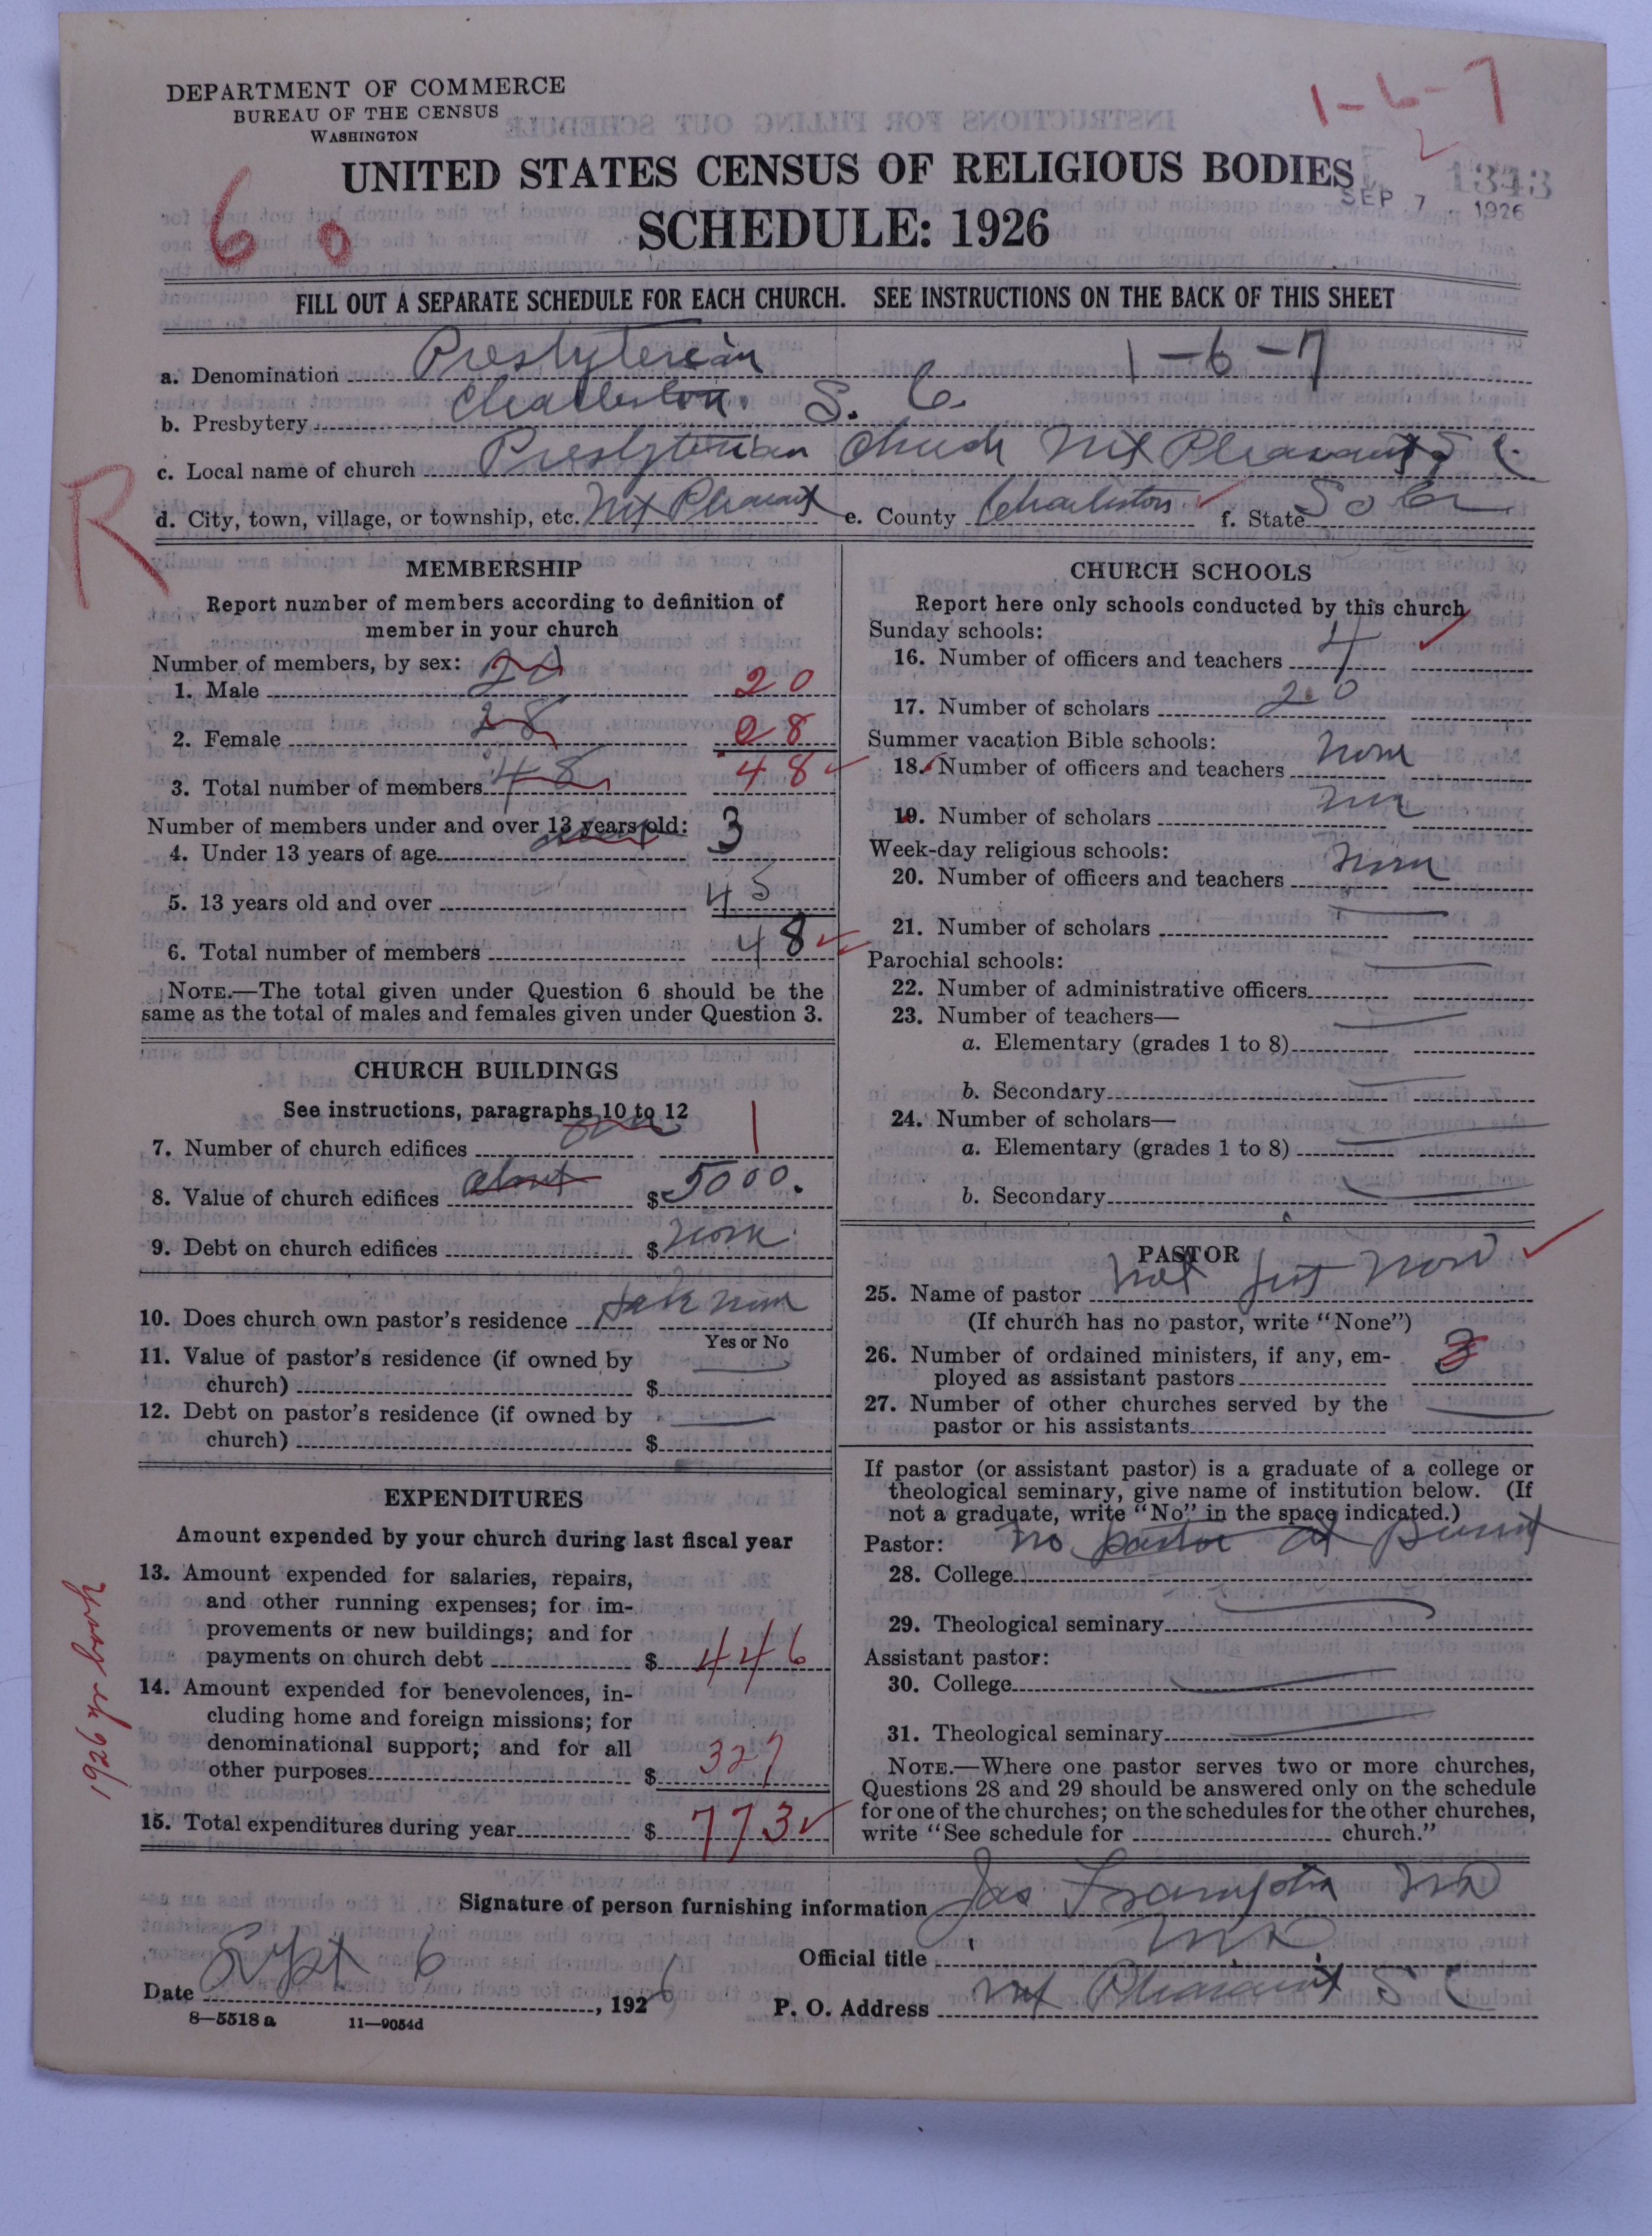 DEPARTMENT OF COMMERCE
BUREAU OF THE CENSUS
WASHINGTON
1-6-7
UNITED STATES CENSUS OF RELIGIOUS BODIES
1343
SEP 7 1926
SCHEDULE: 1926
60
FILL OUT A SEPARATE SCHEDULE FOR EACH CHURCH. SEE INSTRUCTIONS ON THE BACK OF THIS SHEET
a. Denomination Presbyterian 1-6-7
b. Presbytery Charleston. S. C.
c. Local name of church Presbyterian Church Mt Pleasant, S C.
R
d. City, town, village, or township, etc. Mt Pleasant e. County Charleston f. State So Ca
MEMBERSHIP
Report number of members according to definition of
member in your church
Number of members, by sex:
1. Male 20 20
2. Female 28 28
3. Total number of members 48 48
Number of members under and over 13 years old:
4. Under 13 years of age 3
5. 13 years old and over 45
6. Total number of members 48
NOTE.—The total given under Question 6 should be the
same as the total of males and females given under Question 3.
CHURCH BUILDINGS
See instructions, paragraphs 10 to 12
7. Number of church edifices one 1
8. Value of church edifices about $5000.
9. Debt on church edifices $ None
10. Does church own pastor's residence
Yes or No
11. Value of pastor's residence (if owned by
church) $
12. Debt on pastor's residence (if owned by
church) $
EXPENDITURES
Amount expended by your church during last fiscal year
13. Amount expended for salaries, repairs,
and other running expenses; for im-
provements or new buildings; and for
payments on church debt $ 446
14. Amount expended for benevolences, in-
cluding home and foreign missions; for
denominational support; and for all
other purposes $ 327
15. Total expenditures during year $ 773
1926 yr book
CHURCH SCHOOLS
Report here only schools conducted by this church
Sunday schools:
16. Number of officers and teachers 4
17. Number of scholars 20
Summer vacation Bible schools:
18. Number of officers and teachers None
19. Number of scholars
Week-day religious schools:
20. Number of officers and teachers None
21. Number of scholars
Parochial schools:
22. Number of administrative officers
23. Number of teachers—
a. Elementary (grades 1 to 8)
b. Secondary
24. Number of scholars—
a. Elementary (grades 1 to 8)
b. Secondary
PASTOR
25. Name of pastor Not just now
(If church has no pastor, write "None")
26. Number of ordained ministers, if any, em-
ployed as assistant pastors
27. Number of other churches served by the
pastor or his assistants
If pastor (or assistant pastor) is a graduate of a college or
theological seminary, give name of institution below. (If
not a graduate, write "No" in the space indicated.)
Pastor: No pastor at present
28. College
29. Theological seminary
Assistant pastor:
30. College
31. Theological seminary
NOTE.—Where one pastor serves two or more churches,
Questions 28 and 29 should be answered only on the schedule
for one of the churches; on the schedules for the other churches,
write "See schedule for church."
Signature of person furnishing information Jas Frampton MD
Official title MD
Date Sept 6, 1926
P. O. Address Mt Pleasant S C
8—5518 a 11—9054d